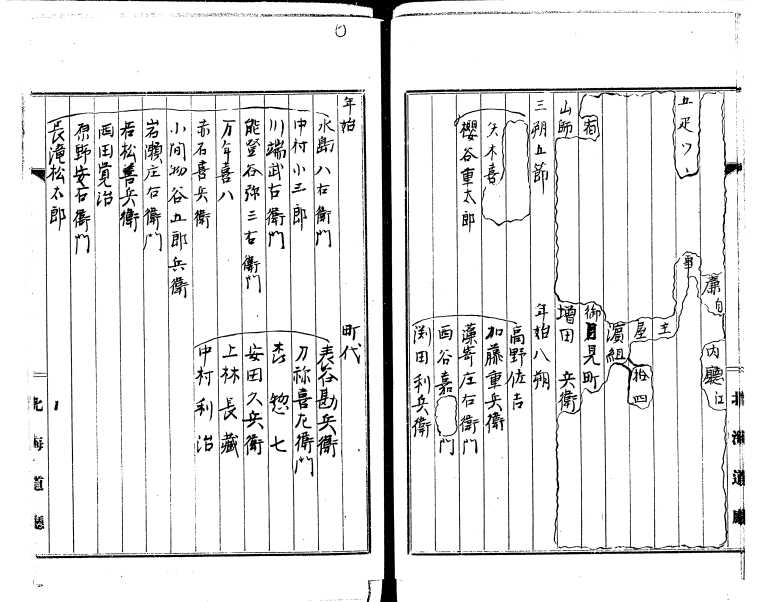 廉自
内聽江
五疋ツヽ
事
主
屋
拾四
濱組
御目見町
宿
山師
増田 兵衛
三朔五節
年始八朔
矢木喜
高野佐吉
櫻谷重太郎
加藤重兵衛
藻寄庄右衛門
西谷嘉 門
渕田利兵衛
北海道廳
年始
町代
水嶋八右衛門
表谷勘兵衛
中村小三郎
刀祢喜左衛門
川端武右衛門
杏惣七
能登谷弥三右衛門
安田久兵衛
万年喜八
上林長藏
赤石喜兵衛
中村利治
小間物谷五郎兵衛
岩瀬庄右衛門
若松善兵衛
西田覚治
原野安右衛門
長滝松太郎
北海道廳